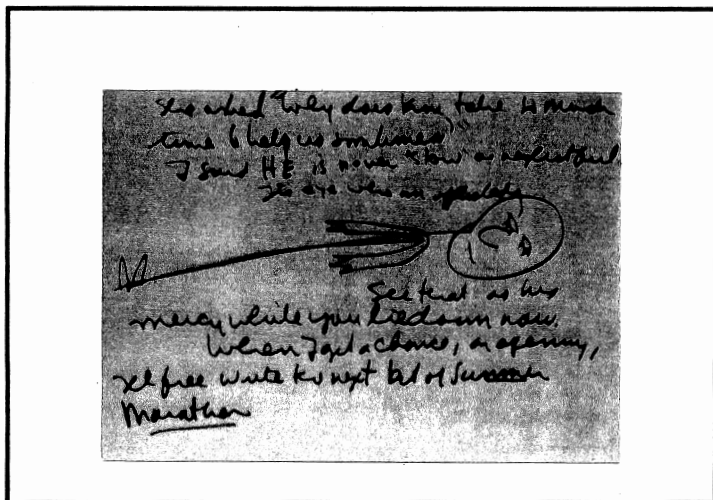 She asked "Why does  take so much
time to help us sometimes"
I said HE is never slow or
See that as his
mercy while you  down now.
When I get a chance, an opening,
I'll free write the next bit of Summer
Marathon